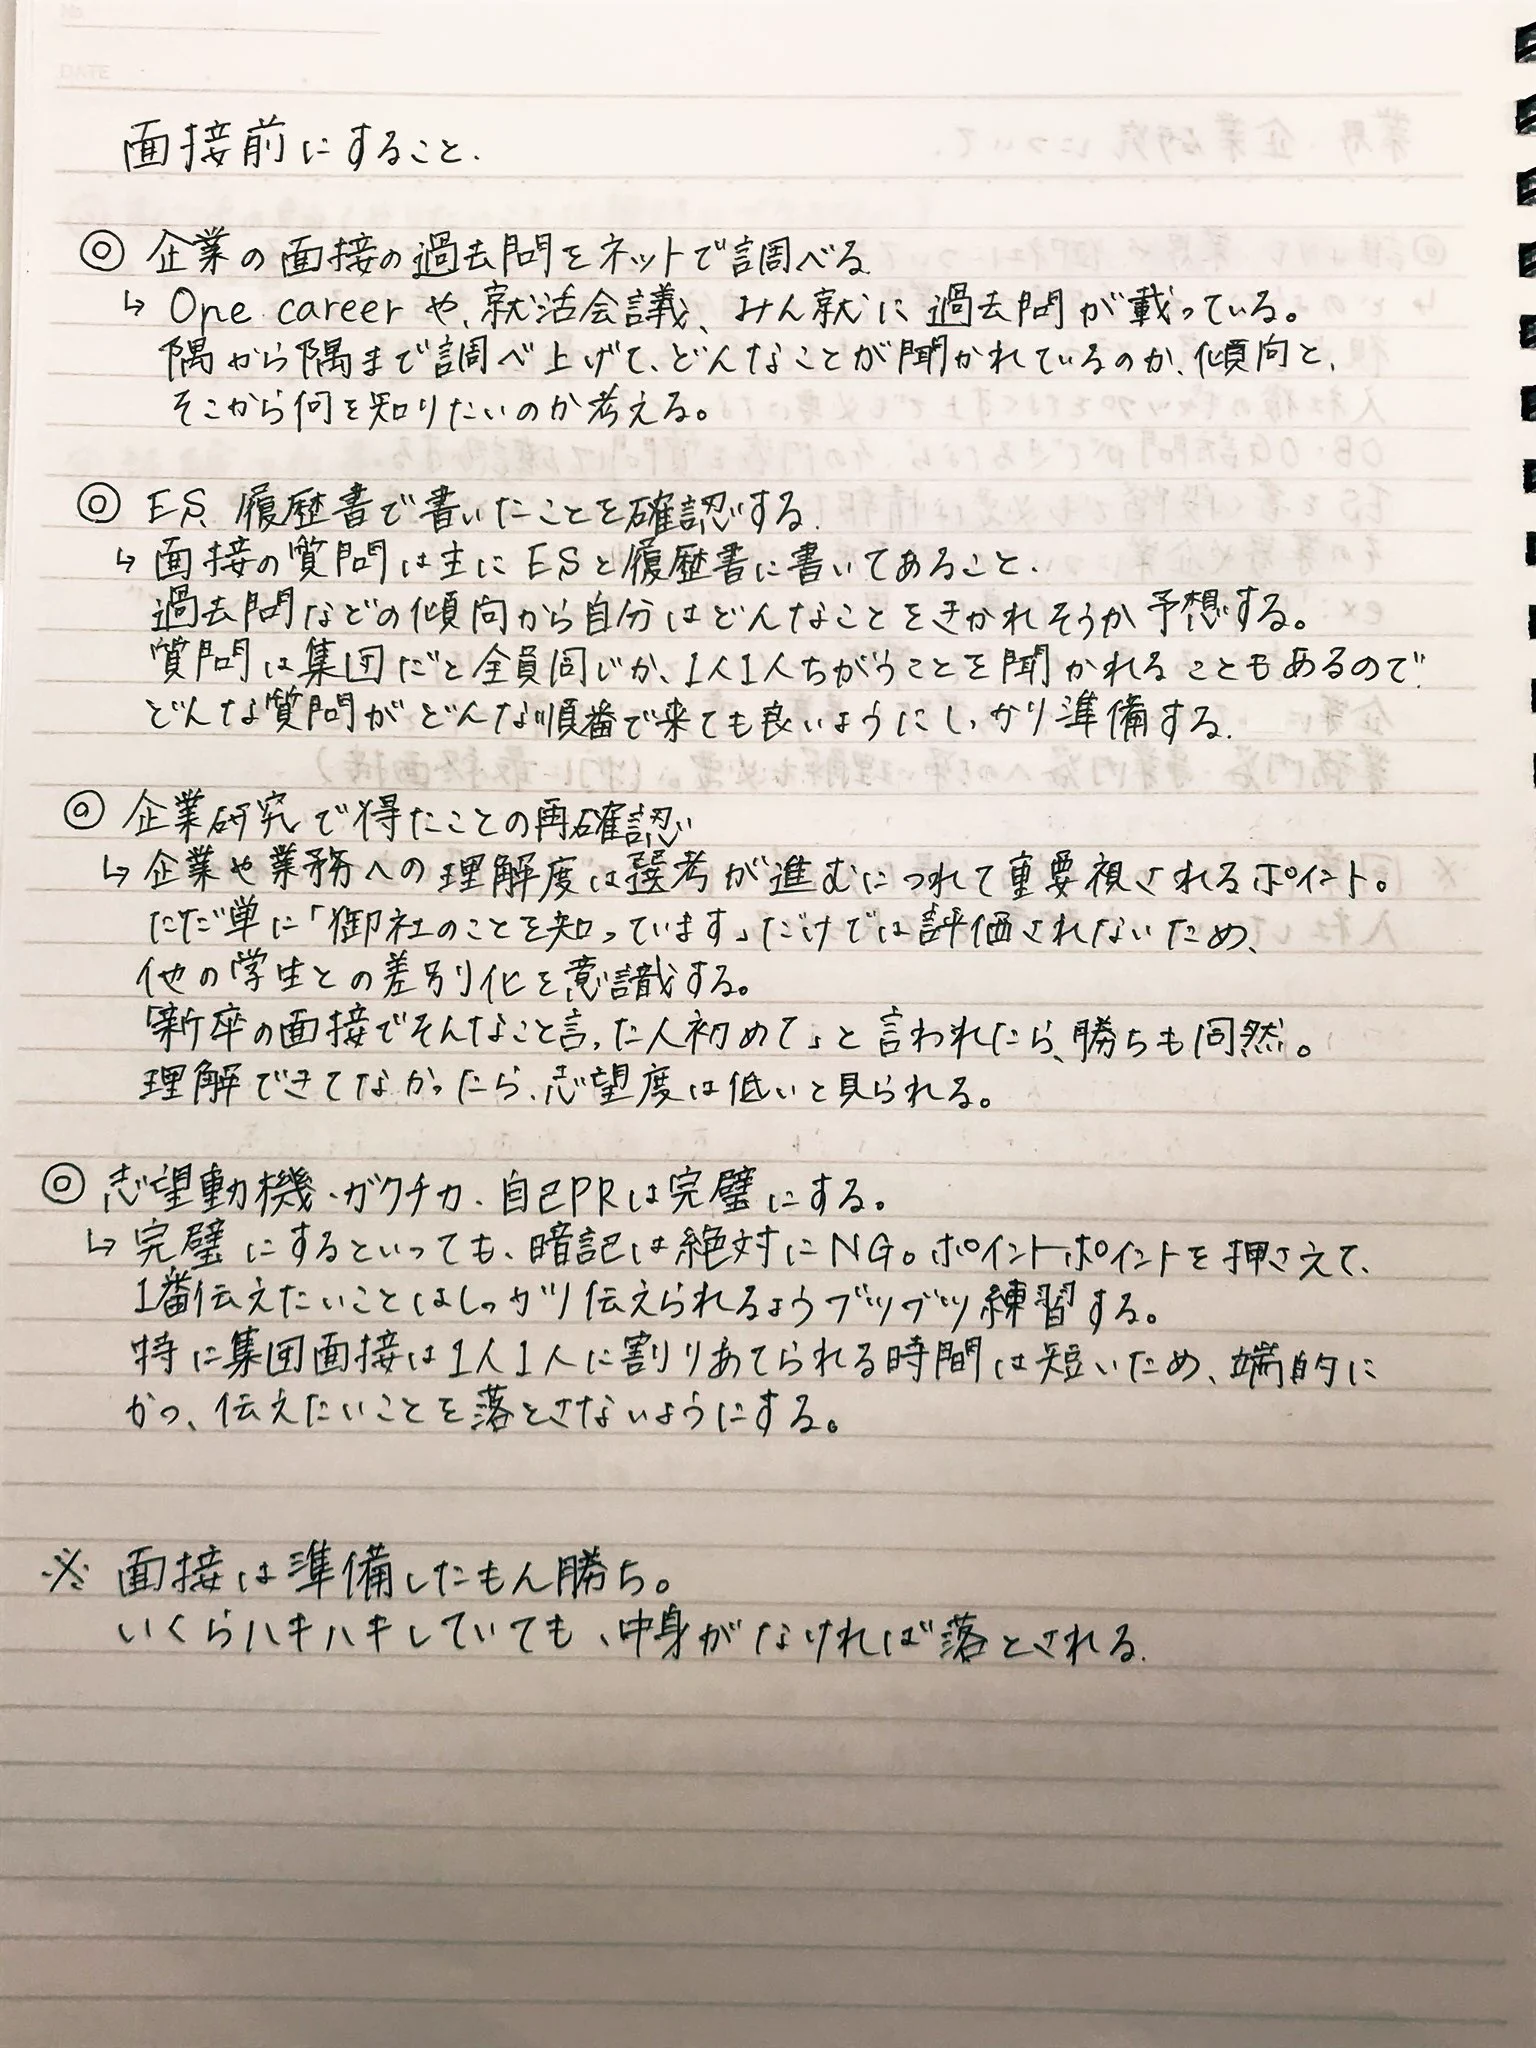 DATE
面接前にすること.
◎ 企業の面接の過去問をネットで調べる
↳ One careerや、就活会議、みん就に過去問が載っている。
隅から隅まで調べ上げて、どんなことが聞かれているのか、傾向と、
そこから何を知りたいのか考える。
◎ ES、履歴書で書いたことを確認する.
↳ 面接の質問は主にESと履歴書に書いてあること.
過去問などの傾向から自分はどんなことをきかれそうか予想する。
質問は集団だと全員同じか、1人1人ちがうことを聞かれることもあるので
どんな質問がどんな順番で来ても良いようにしっかり準備する.
◎ 企業研究で得たことの再確認
↳ 企業や業務への理解度は選考が進むにつれて重要視されるポイント。
ただ単に「御社のことを知っています」だけでは評価されないため、
他の学生との差別化を意識する。
「新卒の面接でそんなこと言った人初めて」と言われたら、勝ちも同然。
理解できてなかったら、志望度は低いと見られる。
◎ 志望動機・ガクチカ・自己PRは完璧にする。
↳ 完璧にするといっても、暗記は絶対にNG。ポイントポイントを押さえて、
1番伝えたいことはしっかり伝えられるようブツブツ練習する。
特に集団面接は1人1人に割りあてられる時間は短いため、端的に
かつ、伝えたいことを落とさないようにする。
※ 面接は準備したもん勝ち。
いくらハキハキしていても、中身がなければ落とされる.